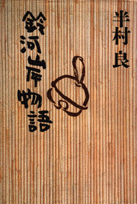 半村良
鈴河岸物語